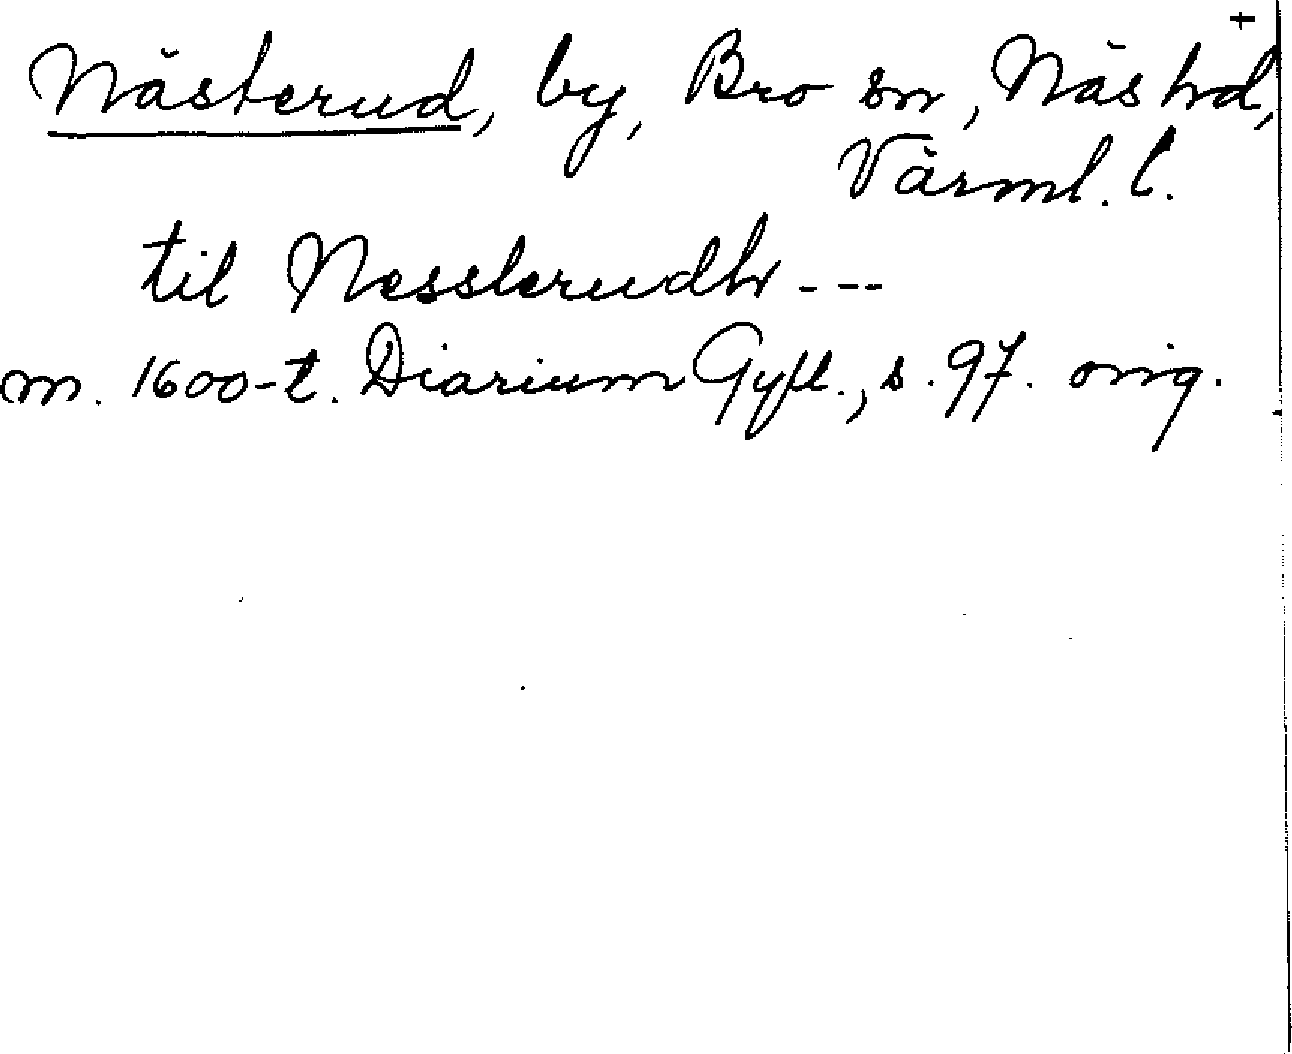 +
Nästerud, by, Bro sn, Näs hd,
Värml. l.
til Nessterudh ---
m. 1600-t. Diarium Gyll., s. 97. orig.